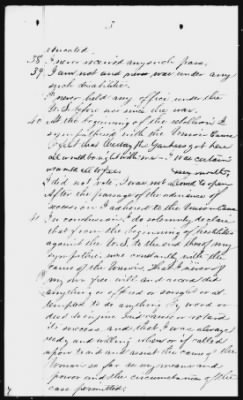 3
38 I never received any such pass.
39 I am not and never was under any
such disabilities.
I never held any office under the
U.S. before nor since the war.
40 At the beginning of the rebellion I
sympathized with the Union Cause
I felt that the Yankees got here
all would be right with me - I was certain
would
I did not vote, I was not allowed to
After the passage of the ordinance of
secession I adhered to the Union Cause
41 In conclusion I do solemnly declare
that from the beginning of hostilities
against the U.S. to the end thereof my
sympathies were constantly with the
cause of the United States That I never of
my own free will and accord did
anything or offered or sought or at-
tempted to do anything by word or
deed to injure said cause or retard
its success and that I was always
ready and willing when if called
upon to aid and assist the cause of the
Union so far as my means and
power and the circumstances of the
case permitted.